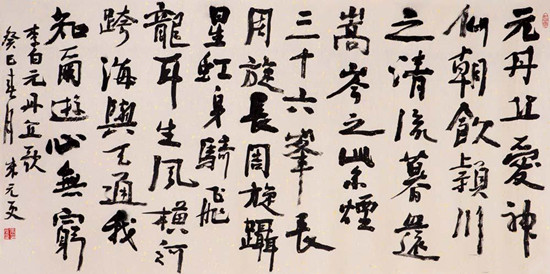 元丹丘愛神
仙朝飲潁川
之清流暮還
嵩岑之紫煙
三十六峯長
周旋長周旋躡
星虹身騎飛
龍耳生風橫河
跨海與天通我
知爾遊心無窮
李白元丹丘歌
癸巳春月 朱元更